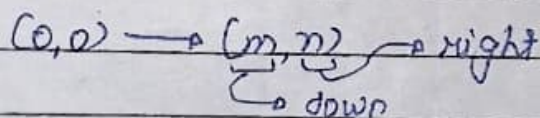 (0,0) → (m,n) → right
↳ down